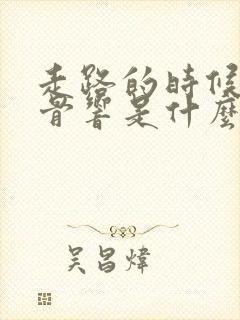 走路的時候
骨響是什麼
吴昌煒